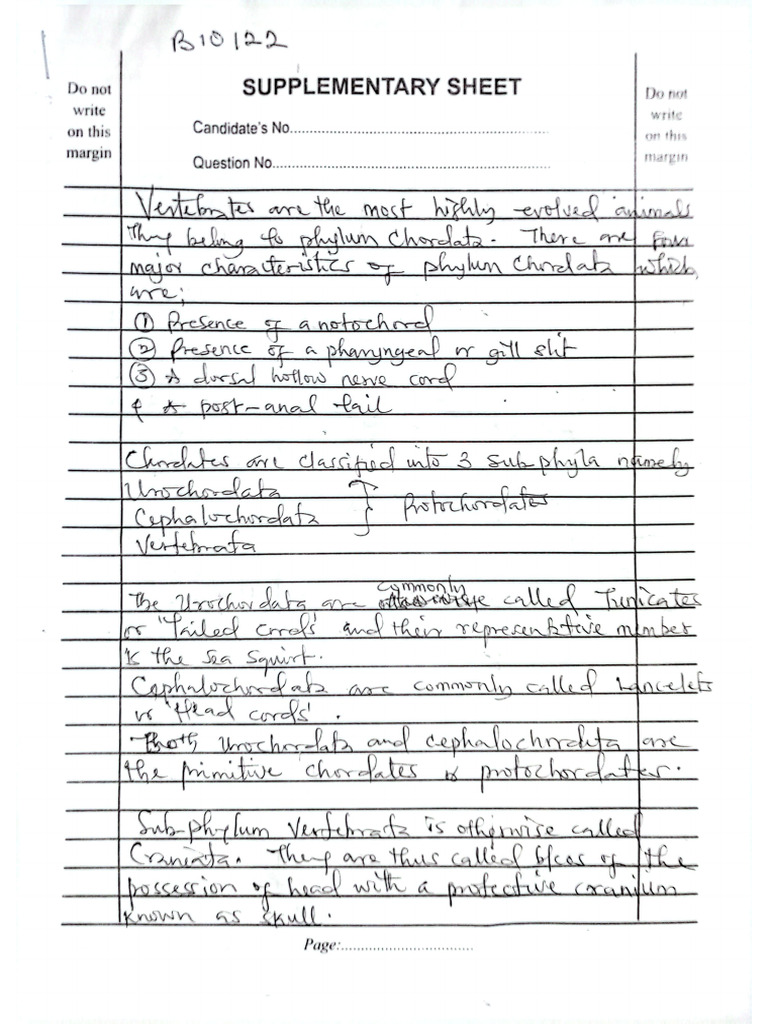 BIO122
SUPPLEMENTARY SHEET
Do not
write
on this
margin
Candidate's No.
Question No.
Do not
write
on this
margin
Vertebrates are the most highly evolved animals
They belong to phylum Chordata. There are four
major characteristics of phylum Chordata which
are;
① Presence of a notochord
② Presence of a pharyngeal or gill slit
③ A dorsal hollow nerve cord
4 A post-anal tail
Chordates are classified into 3 sub-phyla namely
Urochordata
Cephalochordata } Protochordates
Vertebrata
The Urochordata are commonly called Tunicates
or 'Tailed cords' and their representative member
is the sea squirt.
Cephalochordata are commonly called Lancelets
or 'Head cords'.
Both Urochordata and cephalochordata are
the primitive chordates or protochordates.
Sub-phylum Vertebrata is otherwise called
Craniata. They are thus called bcos of the
possession of head with a protective cranium
known as skull.
Page: